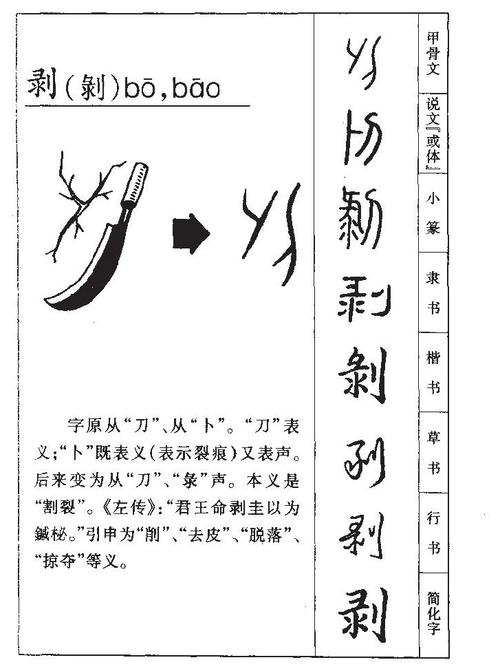 剥(剝)bō,bāo
字原从“刀”、从“卜”。“刀”表
义;“卜”既表义(表示裂痕)又表声。
后来变为从“刀”、“彔”声。本义是
“割裂”。《左传》:“君王命剥圭以为
鏚柲。”引申为“削”、“去皮”、“脱落”、
“掠夺”等义。
甲骨文
说文『或体』
小篆
隶书
楷书
草书
行书
简化字
剝
剥
剥